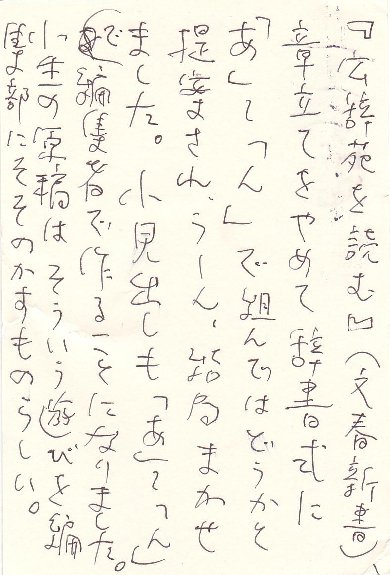 『広辞苑を読む』(文春新書)、
章立てをやめて辞書式に
「あ」~「ん」で組んではどうかと
提案され、うーん、結局まかせ
ました。小見出しも「あ」~「ん」
で編集者で作ることになりました。
小生の原稿はそういう遊びを編
集部にそそのかすものらしい。